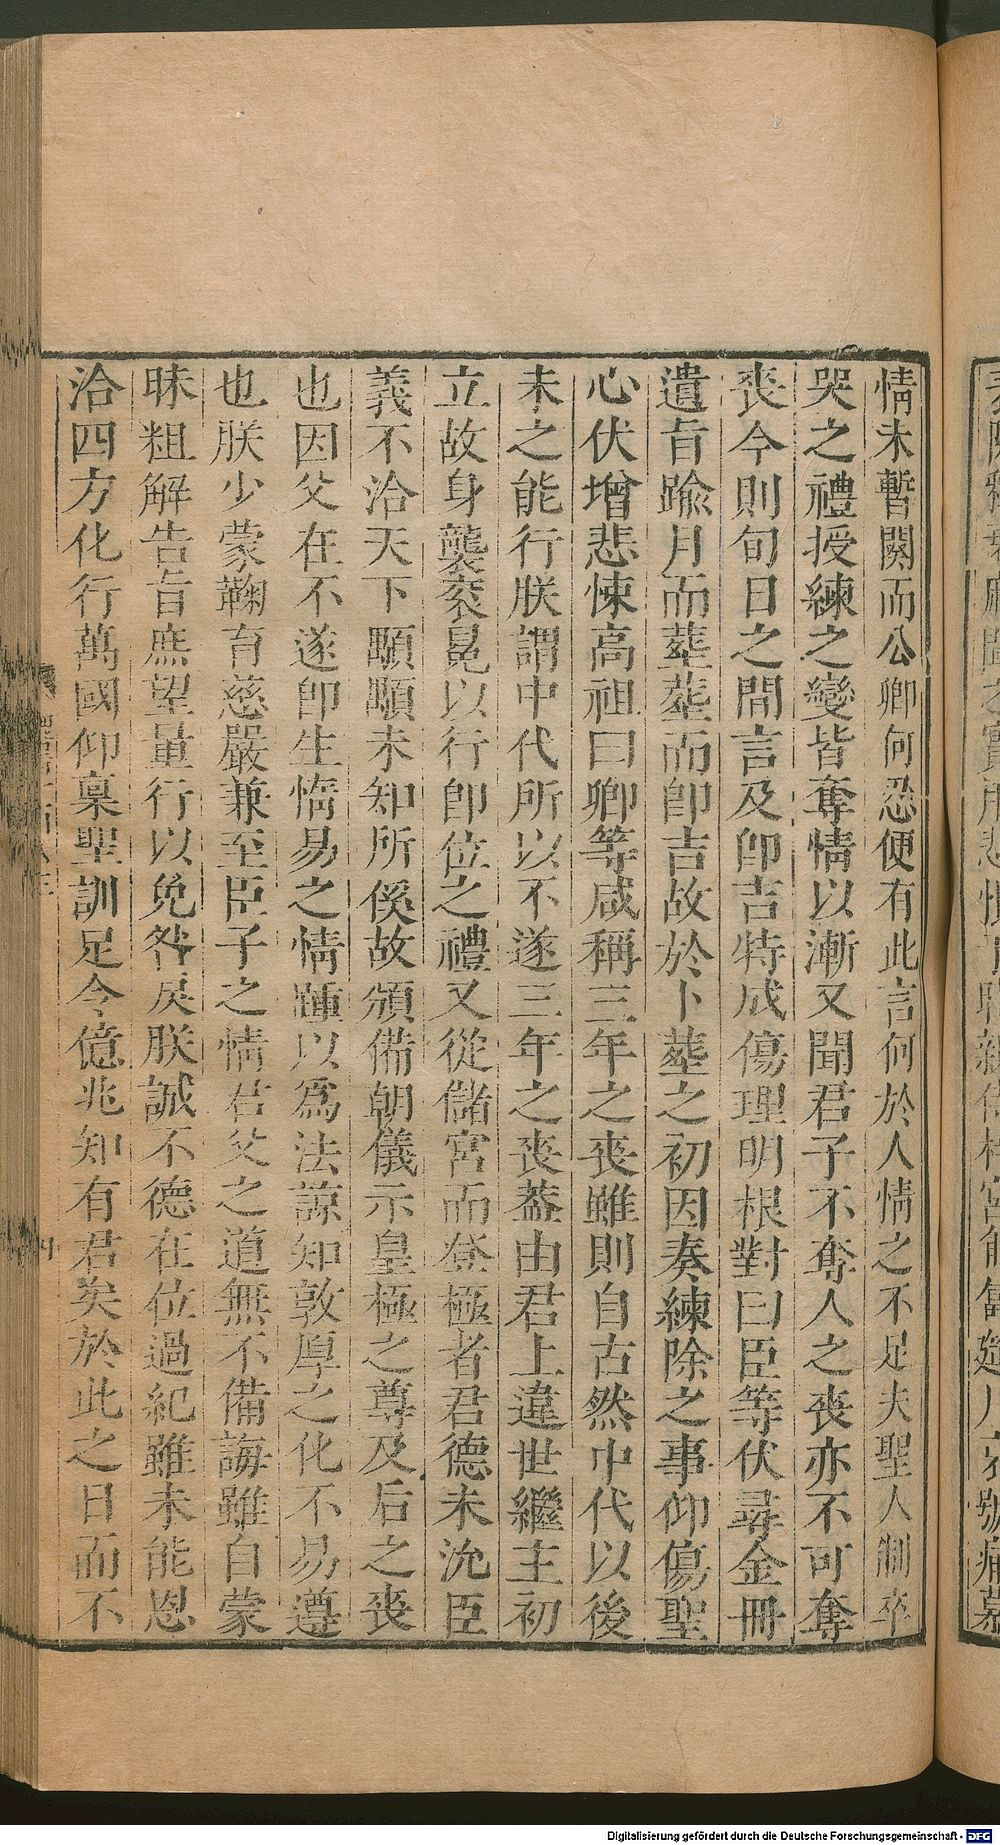 情未暫闋而公卿何忍便有此言何於人情之不足夫聖人制卒
哭之禮授練之變皆奪情以漸又聞君子不奪人之喪亦不可奪
喪今則旬日之間言及即吉特成傷理明根對曰臣等伏尋金冊
遺旨踰月而葬葬而即吉故於卜葬之初因奏練除之事仰傷聖
心伏增悲悚高祖曰卿等咸稱三年之喪雖則自古然中代以後
未之能行朕謂中代所以不遂三年之喪葢由君上違世繼主初
立故身襲衮冕以行即位之禮又從儲宮而登極者君德未沇臣
義不洽天下顒顒未知所傒故頒備朝儀示皇極之尊及后之喪
也因父在不遂即生惰易之情踵以爲法諒知敦厚之化不易遵
也朕少蒙鞠育慈嚴兼至臣子之情君父之道無不備誨雖自蒙
昧粗解告旨庶望量行以免咎戾朕誠不德在位過紀雖未能恩
洽四方化行萬國仰稟聖訓足令億兆知有君矣於此之日而不
Digitalisierung gefördert durch die Deutsche Forschungsgemeinschaft - DFG